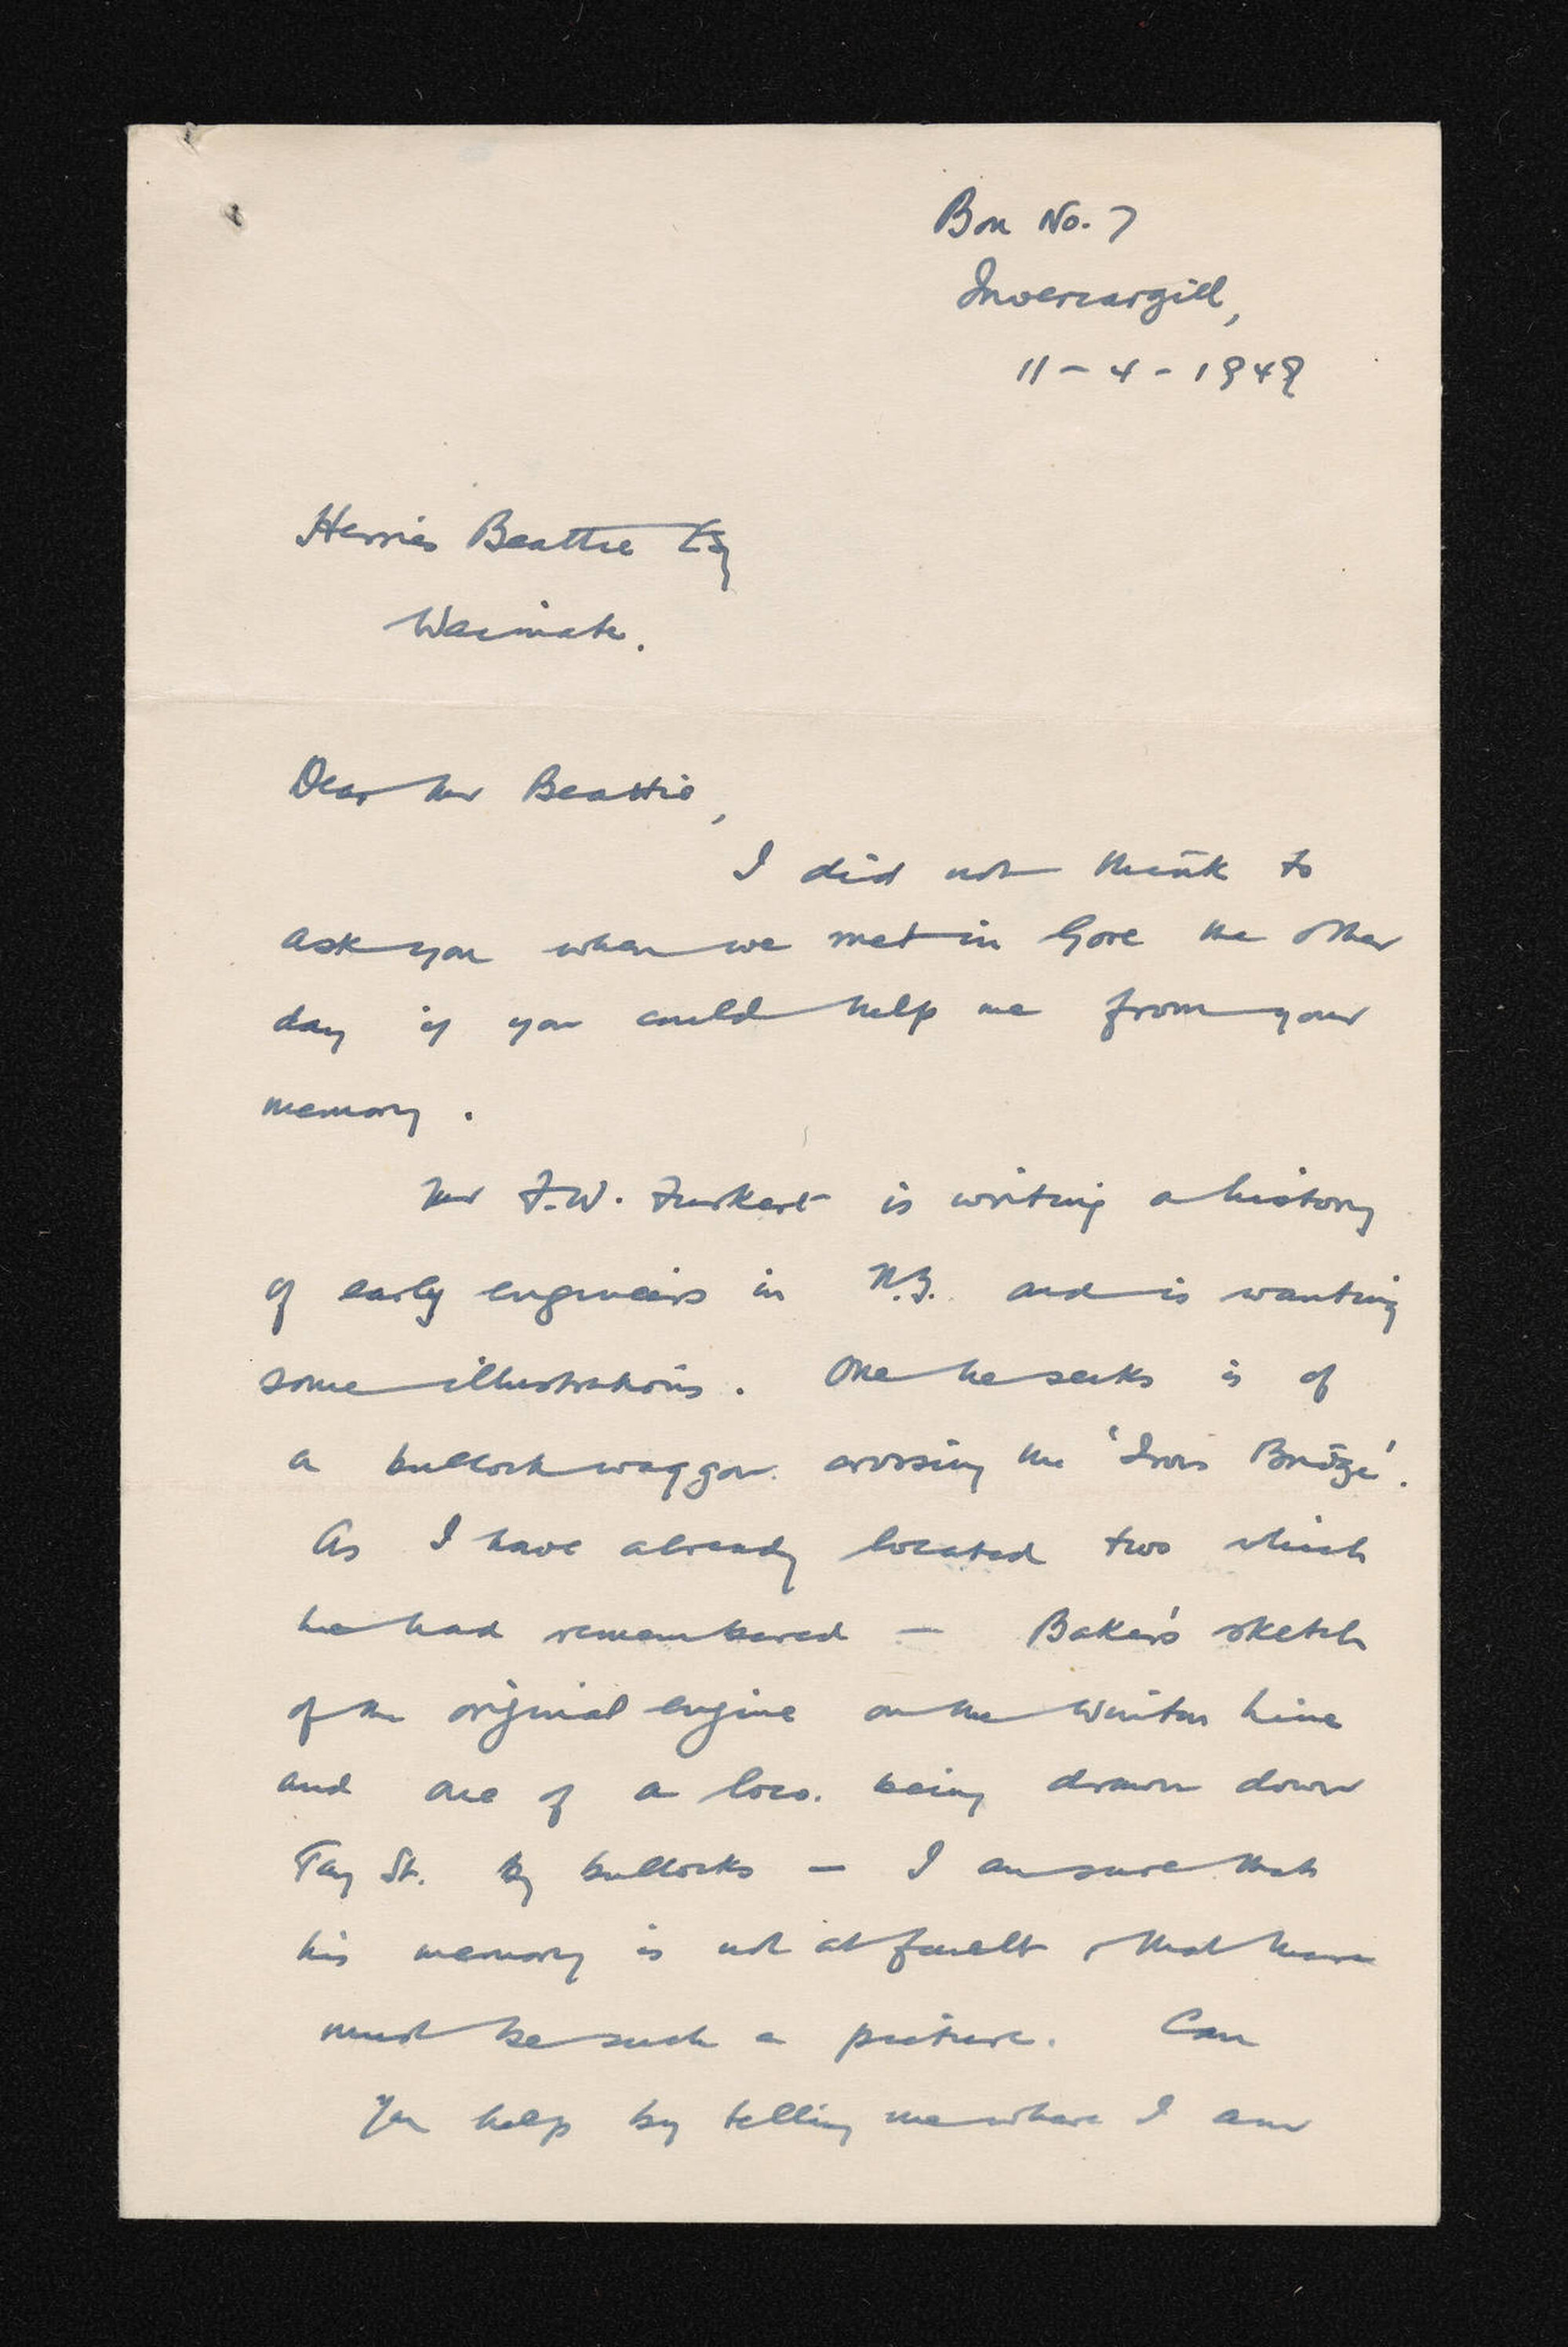 Box No. 7
Invercargill,
11-4-1949
Herries Beattie Esq
Waimate.
Dear Mr Beattie,
I did not think to
ask you when we met in Gore the other
day if you could help me from your
memory.
Mr F.W. Furkert is writing a history
of early engineers in N.Z. and is wanting
some illustrations. One he seeks is of
a bullock waggon crossing the 'Iron Bridge'.
As I have already located two which
he had remembered — Baker's sketch
of the original engine on the Winton Line
and one of a loco. being drawn down
Tay St. by bullocks — I am sure that
his memory is not at fault & that there
must be such a picture. Can
you help by telling me where I am